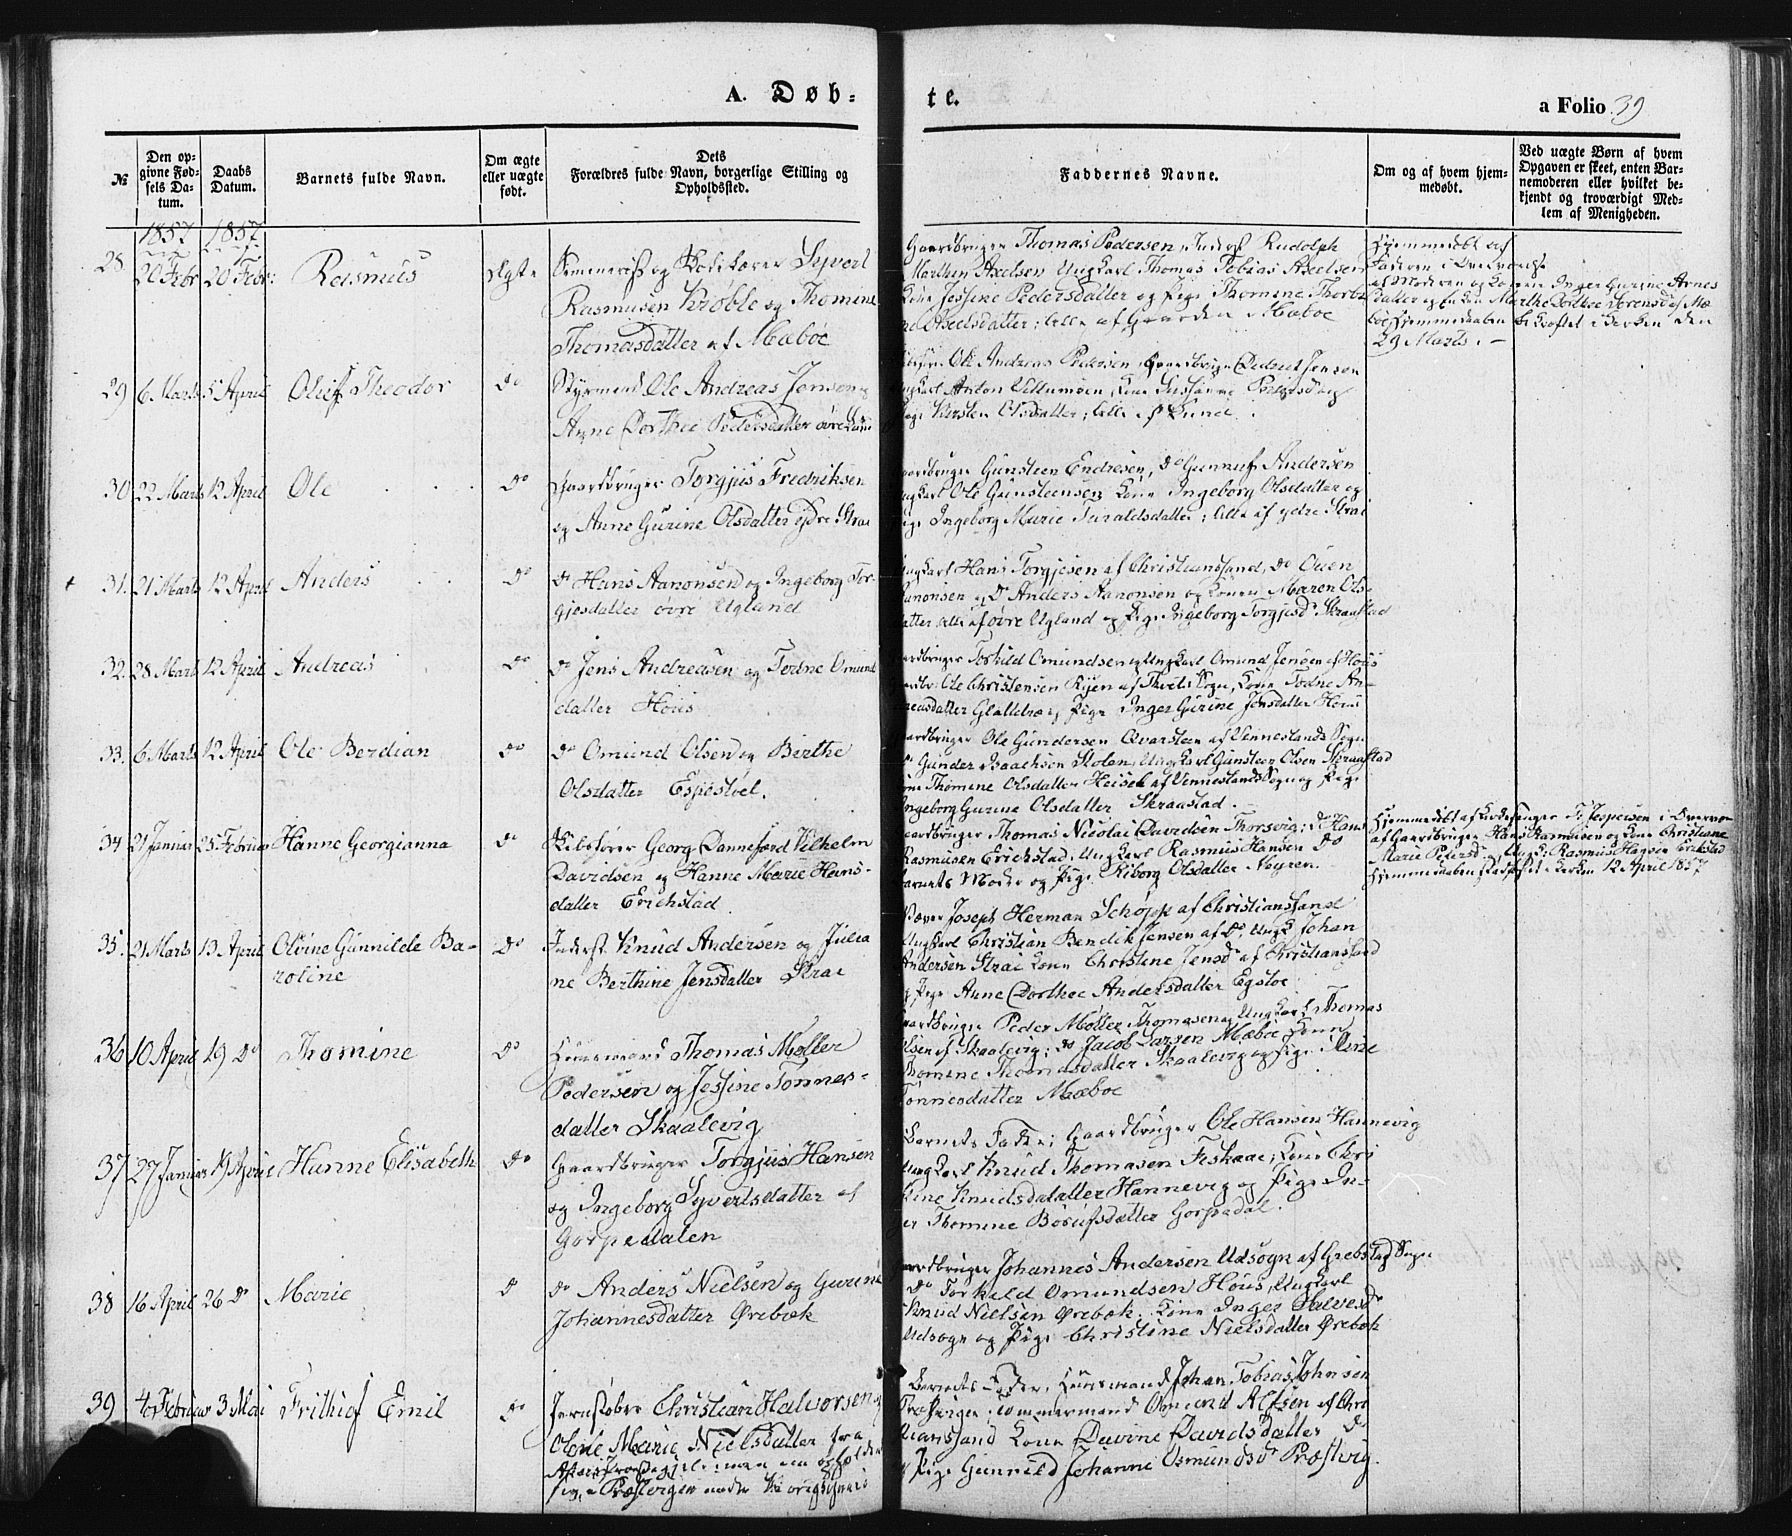 A. Døb-
te.
a Folio 39
№
Den op-
givne Fød-
sels Da-
tum.
Daabs
Datum.
Barnets fulde Navn.
Om ægte
eller uægte
født.
Dets
Forældres fulde Navn, borgerlige Stilling og
Opholdssted.
Faddernes Navne.
Om og af hvem hjem-
medøbt.
Ved uægte Børn af hvem
Opgaven er skeet, enten Bar-
nemoderen eller hvilket be-
kjendt og troværdigt Med-
lem af Menigheden.
1857 1857
28. 20 Febr 20 Febr: Rasmus Ægte
og Syvert
Rasmusen Krøble og Thomine
Thomasdatter af Mæbøe
Gaardbruger Thomas Pedersen, Inderst Rudolph
Marthin Axelsen Ungkarl Thomas Tobias Axelsen
Kone Jessine Pedersdatter og Pige Thomine
Axelsdatter; alle af Gaarden Mæbøe
Hjemmedøbt af
Faderen i Overværelse
af Moderen og Konen Inger Gurine Arnes
datter og Enken Marthe Dorthea Sørensd af Mæ-
bøe, Hjemmedaaben bekræftet i Kirken den
29 Marts. -
29 6 Marts 5 April Oluf Theodor Do
Styrmand Ole Andreas Jensen
Anne Dorthea Pedersdatter øvre Lund
Ole Andreas Pedersen, Gaardbruger Jensen
Ungkarl Anton Villumsen, Kone Susanne Pedersd og
Pige Kirsten Olsdatter; alle af Lund.
30 22 Marts 12 April Ole Do
Gaardbruger Torgjus Fredriksen
og Anne Gurine Olsdatter ydre Strai
Gaardbruger Gunsteen Endresen, Do Gunnuf Andersen
Ungkarl Ole Gunsteensen Kone Ingeborg Olsdatter og
Pige Ingeborg Marie Taraldsdatter; alle af ydre Strai
31. 21 Marts 12 April Anders Do
Do Hans Aanonsen og Ingeborg Tor-
gjesdatter øvre Ugland
Ungkarl Hans Torgjesen af Christianssand, Do Ouen
Aanonsen og Do Anders Aanonsen og Konen Maren Ols-
datter alle af øvre Ugland og Pige Ingeborg Torgjusd Skraastad
32. 28 Marts 12 April Andreas Do
Do Jens Andreasen og Tomine Omund
datter Hous
Gaardbruger Torkild Omundsen og Ungkarl Omund Jensen af Hous
Ole Christensen Ryen af Tveits Sogn, Kone An-
dreasdatter og Pige Inger Gurine Jensdatter Hous
33. 6 Marts 12 April Ole Berdian Do
Do Omund Olsen og Birthe
Olsdatter Espestøel.
Gaardbruger Ole Gundersen Qvarsteen af Venneslands Sogn
Gunder Isaachsen Stolen, Ungkarl Gunsteen Olsen Skraastad
Kone Thomine Olsdatter Heisel af Venneslands Sogn og Pige
Ingeborg Gurine Olsdatter Skraastad.
34 21 Januar 25 Februar Hanne Georgianna Do
Skibsfører Georg Dannefærd Vilhelm
Davidsen og Hanne Marie Hans-
datter Erichstad.
Gaardbruger Thomas Nicolai Davidsen Thorsvig; Do Hans
Rasmusen Erichstad, Ungkarl Rasmus Hansen Do
Barnets Moder og Pige Kiborg Olsdatter Nyeren.
Hjemmedøbt af Kirkesanger T. Jespersen i Overvær
af Gaardbruger Hans Rasmusen og Kone Christiane
Marie Petersd Ungk: Rasmus Hansen Erikstad
Hjemmedaaben stadfæstet i Kirken 12 April 1857
35. 21 Marts 13 April Olvine Gunnilde Ba-
roline Do
Inderst Knud Andersen og Julia
ne Berthine Jensdatter Strai
Joseph Herman Schøpp af Christianssand
Ungkarl Christian Bendik Jensen af Do, Ungk Johan
Andersen Strai Kone Christine Jensd af Christianssand
og Pige Anne Dorthea Andersdatter Egstøe
36 10 April 19 Do Thomine Do
Huusmand Thomas Møller
Pedersen og Jessine Tønnes-
datter Skaalevig
Gaardbruger Peder Møller Thomasen og Ungkarl Thomas
Olsen af Skaalevig; Do Jacob Larsen Mæbøe Kone
Thomine Thomasdatter Skaalevig og Pige Aline
Tønnesdatter Mæbøe
37 27 Januar 19 April Hanne Elisabeth Do
Gaardbruger Torgjus Hansen
og Ingeborg Syvertsdatter af
Gorpedalen
Barnets Fader; Gaardbruger Ole Hansen Hannevig
Ungkarl Knud Thomasen Fiskaae, Kone Chri
stine Knudsdatter Hannevig og Pige In-
ger Thomine Børufsdatter Gorpedal.
38 16 April 26 Do Marie D
Do Anders Nielsen og Gurine
Johannesdatter Ørebæk
Gaardbruger Johannes Andersen Udsogn af Grebstad Sogn
Do Torkild Omundsen Hous, Ungkarl
Knud Nielsen Ørebæk. Kone Inger Halvesd
Udsogn og Pige Christine Nielsdatter Ørebæk
39 4 Februar 3 Mai Frithjof Emil Do
Jernstøber Christian Halvorsen og
Olene Marie Nielsdatter fra
i Præstvigen under
Barnets Fader, Huusmand Johan Tobias Johnsen
Præstvigen Tømmermand Omund Alfsen af Chri
stianssand Kone Davine Davidsdatter Do
og Pige Gunnild Johanne Osmundsd Præstvig.